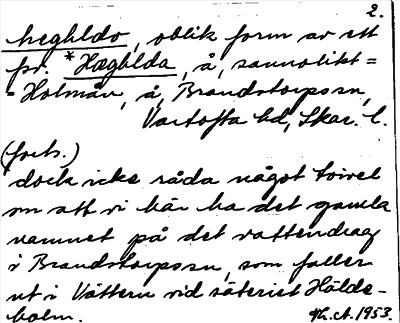 2.
heghldo, oblik form av ett
fsv. *Hæghlda, å, sannolikt =
= Holmån, å, Brandstorpssn,
Vartofta hd, Skar. l.
(forts.)
dock icke råda något tvivel
om att vi här ha det gamla
namnet på det vattendrag
i Brandstorpssn, som faller
ut i Vättern vid säteriet Hålde-
holm. Th. A. 1953.